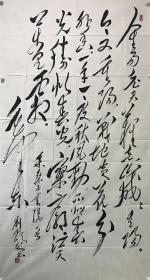 人生易老天难老岁岁重阳
今又重阳战地黄花分
外香一年一度秋风劲不似春
光胜似春光寥廓江天
万里霜
采桑子重阳
毛泽东